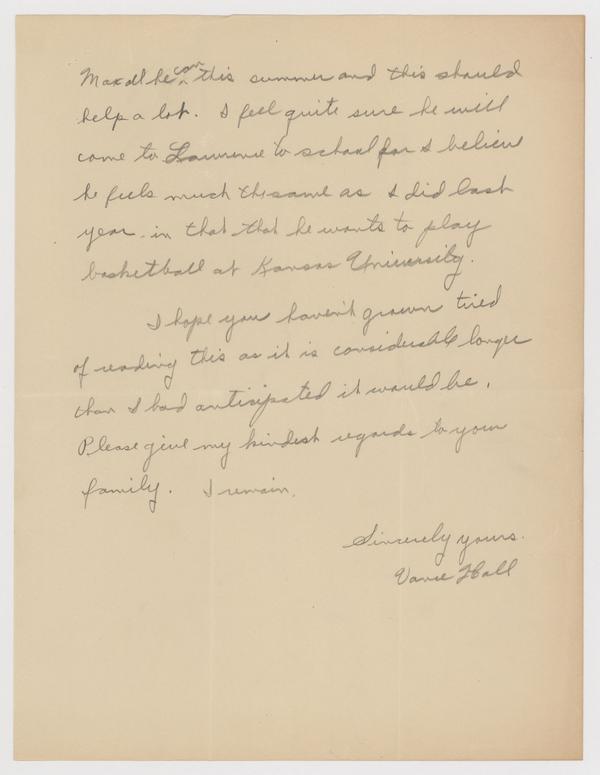 Max all he can this summer and this should
help a lot. I feel quite sure he will
come to Lawrence to school for I believe
he feels much the same as I did last
year in that that he wants to play
basketball at Kansas University.
I hope you haven't grown tired
of reading this as it is considerable longer
than I had anticipated it would be.
Please give my kindest regards to your
family. I remain.
Sincerely yours.
Vance Hall